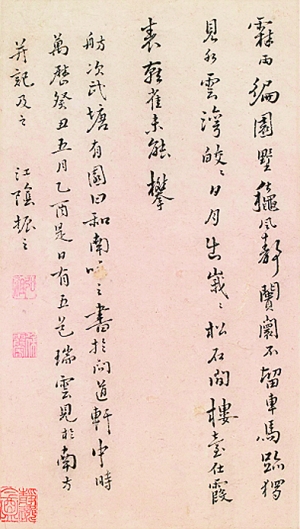 霖雨編園墅風聲靜闤闠不留車馬跡獨
見水雲灣皎皎日月出峩峩松石間樓臺仕霞
表鶴雀未能攀
舫次武塘有園曰和南咏之書於問道軒中時
萬曆癸丑五月乙酉是日有五色瑞雲見於南方
并記及之 江陰振之